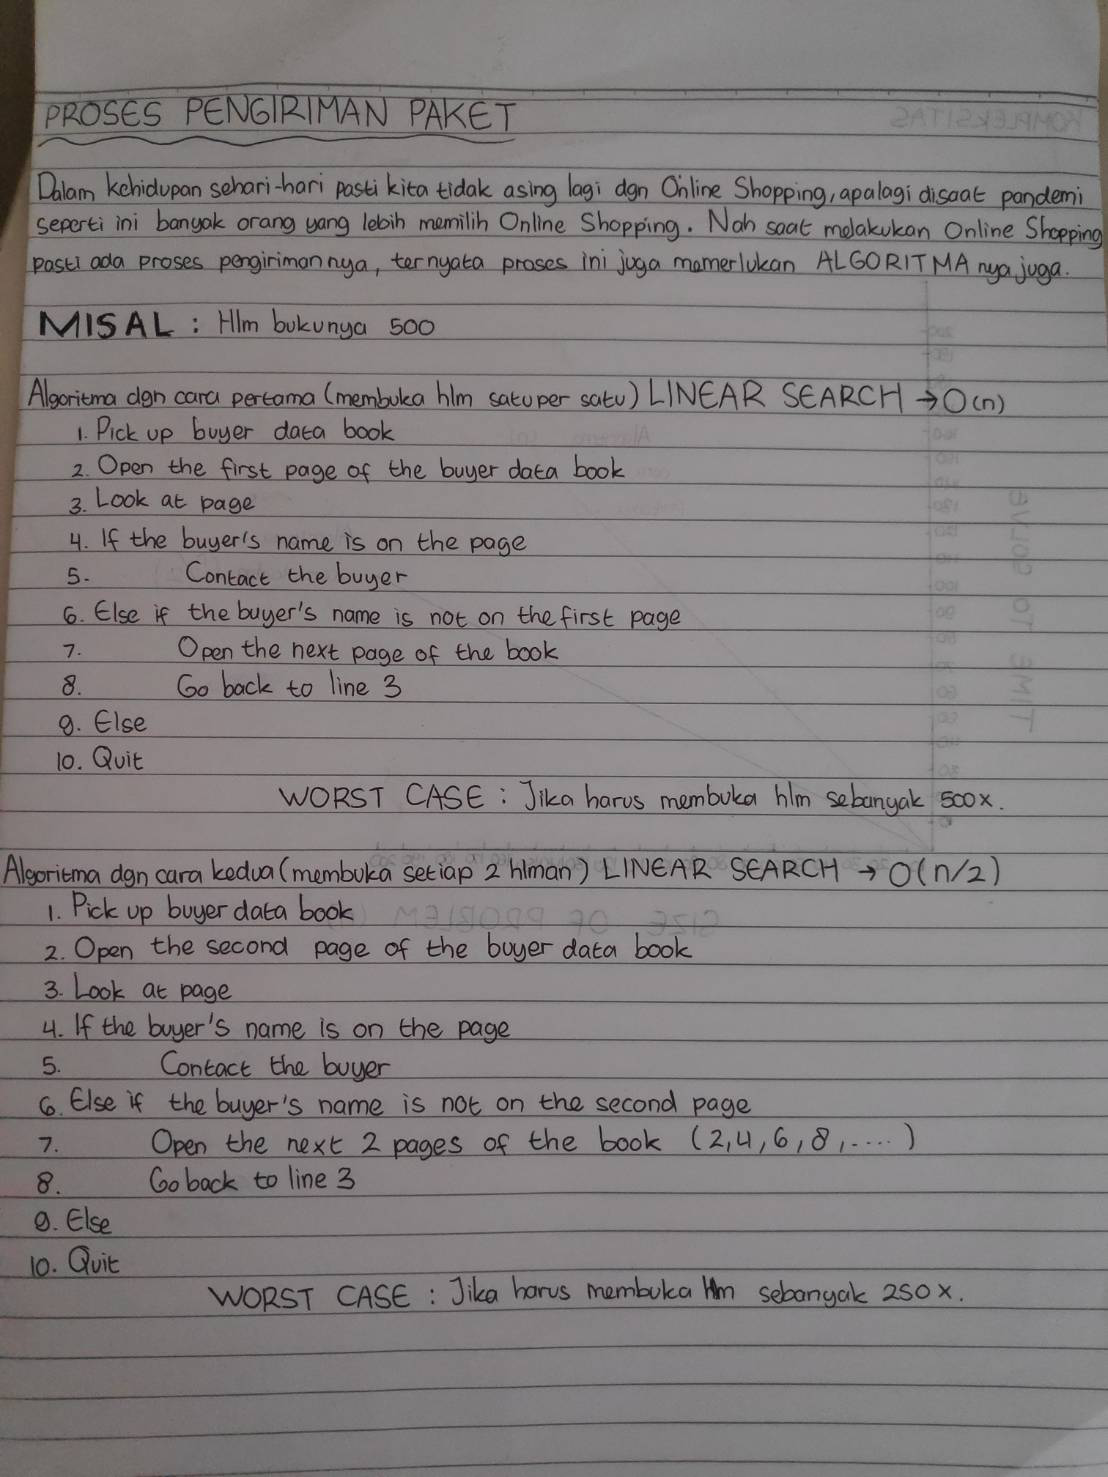 PROSES PENGIRIMAN PAKET
Dalam kehidupan sehari-hari pasti kita tidak asing lagi dgn Online Shopping, apalagi disaat pandemi
seperti ini banyak orang yang lebih memilih Online Shopping. Nah saat melakukan Online Shopping
pasti ada proses pengirimannya, ternyata proses ini juga memerlukan ALGORITMA nya juga.
MISAL : Hlm bukunya 500
Algoritma dgn cara pertama (membuka hlm satu per satu) LINEAR SEARCH → O(n)
1. Pick up buyer data book
2. Open the first page of the buyer data book
3. Look at page
4. If the buyer's name is on the page
5. Contact the buyer
6. Else if the buyer's name is not on the first page
7. Open the next page of the book
8. Go back to line 3
9. Else
10. Quit
WORST CASE : Jika harus membuka hlm sebanyak 500x.
Algoritma dgn cara kedua (membuka setiap 2 hlman) LINEAR SEARCH → O(n/2)
1. Pick up buyer data book
2. Open the second page of the buyer data book
3. Look at page
4. If the buyer's name is on the page
5. Contact the buyer
6. Else if the buyer's name is not on the second page
7. Open the next 2 pages of the book (2,4,6,8,....)
8. Go back to line 3
9. Else
10. Quit
WORST CASE : Jika harus membuka hlm sebanyak 250x.